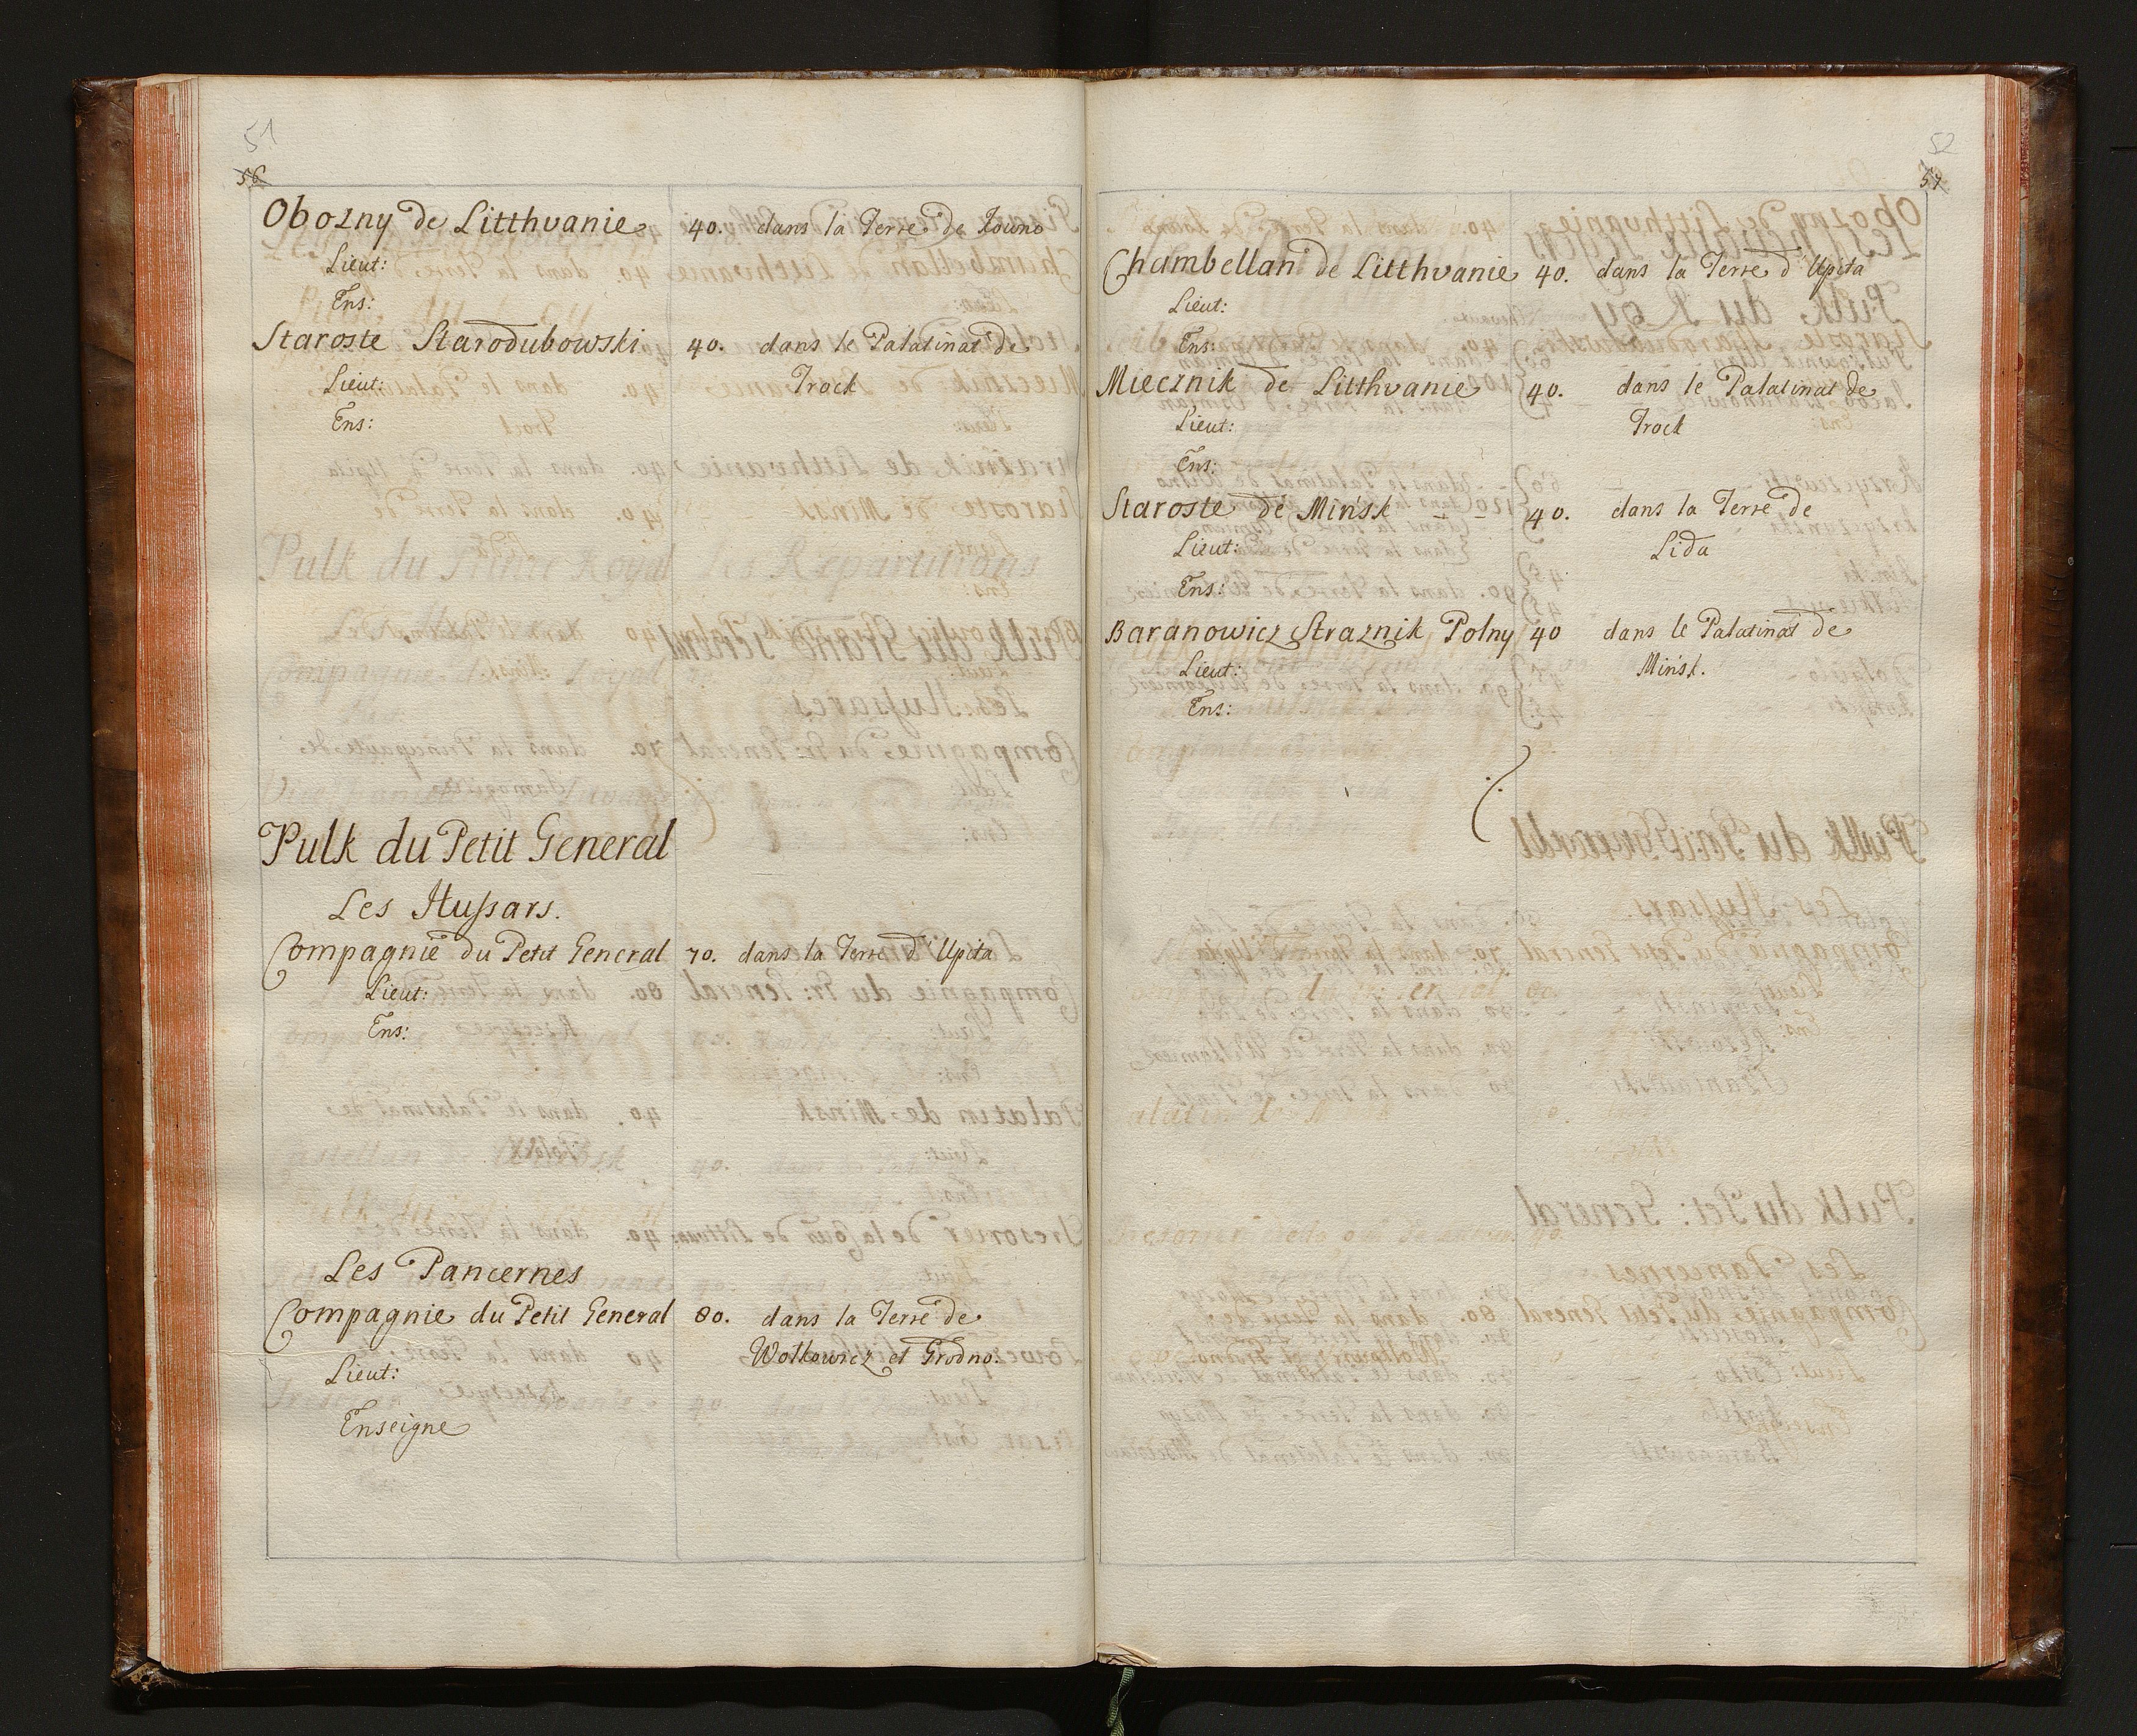 51
56
Obozny de Litthvanie 40. dans la Terre de Kowno
Lieut:
Ens:
Staroste Starodubowski 40. dans le Palatinat de
Lieut: Trock
Ens:
Pulk du Petit General
Les Hussars.
Compagnie du Petit General 70. dans la Terre d'Upita
Lieut:
Ens:
Les Pancernes
Compagnie du Petit General 80. dans la Terre de
Wolkowicz et Grodno.
Lieut:
Enseigne
52
57
Chambellan de Litthvanie 40. dans la Terre d'Upita
Lieut:
Ens:
Miecznik de Litthvanie 40. dans le Palatinat de
Lieut: Trock
Ens:
Staroste de Minsk - - 40. dans la Terre de
Lieut: Lida
Ens:
Baranowicz Straznik Polny 40 dans le Palatinat de
Lieut: Minsk.
Ens: